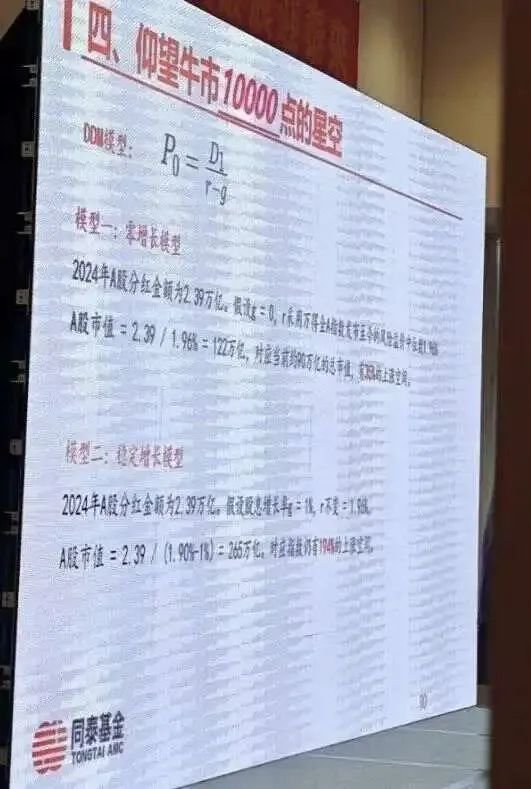 四、仰望牛市10000点的星空
DDM模型：
P₀ = D1 / r-g
模型一：零增长模型
2024年A股分红金额为2.39万亿。假设g = 0，r采用万得全A指数发布至今的风险溢价中位数1.96%
A股市值 = 2.39 / 1.96% = 122万亿，对应当前约90万亿的总市值，有35%的上涨空间。
模型二：稳定增长模型
2024年A股分红金额为2.39万亿。假设股息增长率g = 1%，r不变 = 1.96%，
A股市值 = 2.39 / (1.90%-1%) = 265万亿，对应指数仍有194%的上涨空间。
10
同泰基金
TONGTAI AMC